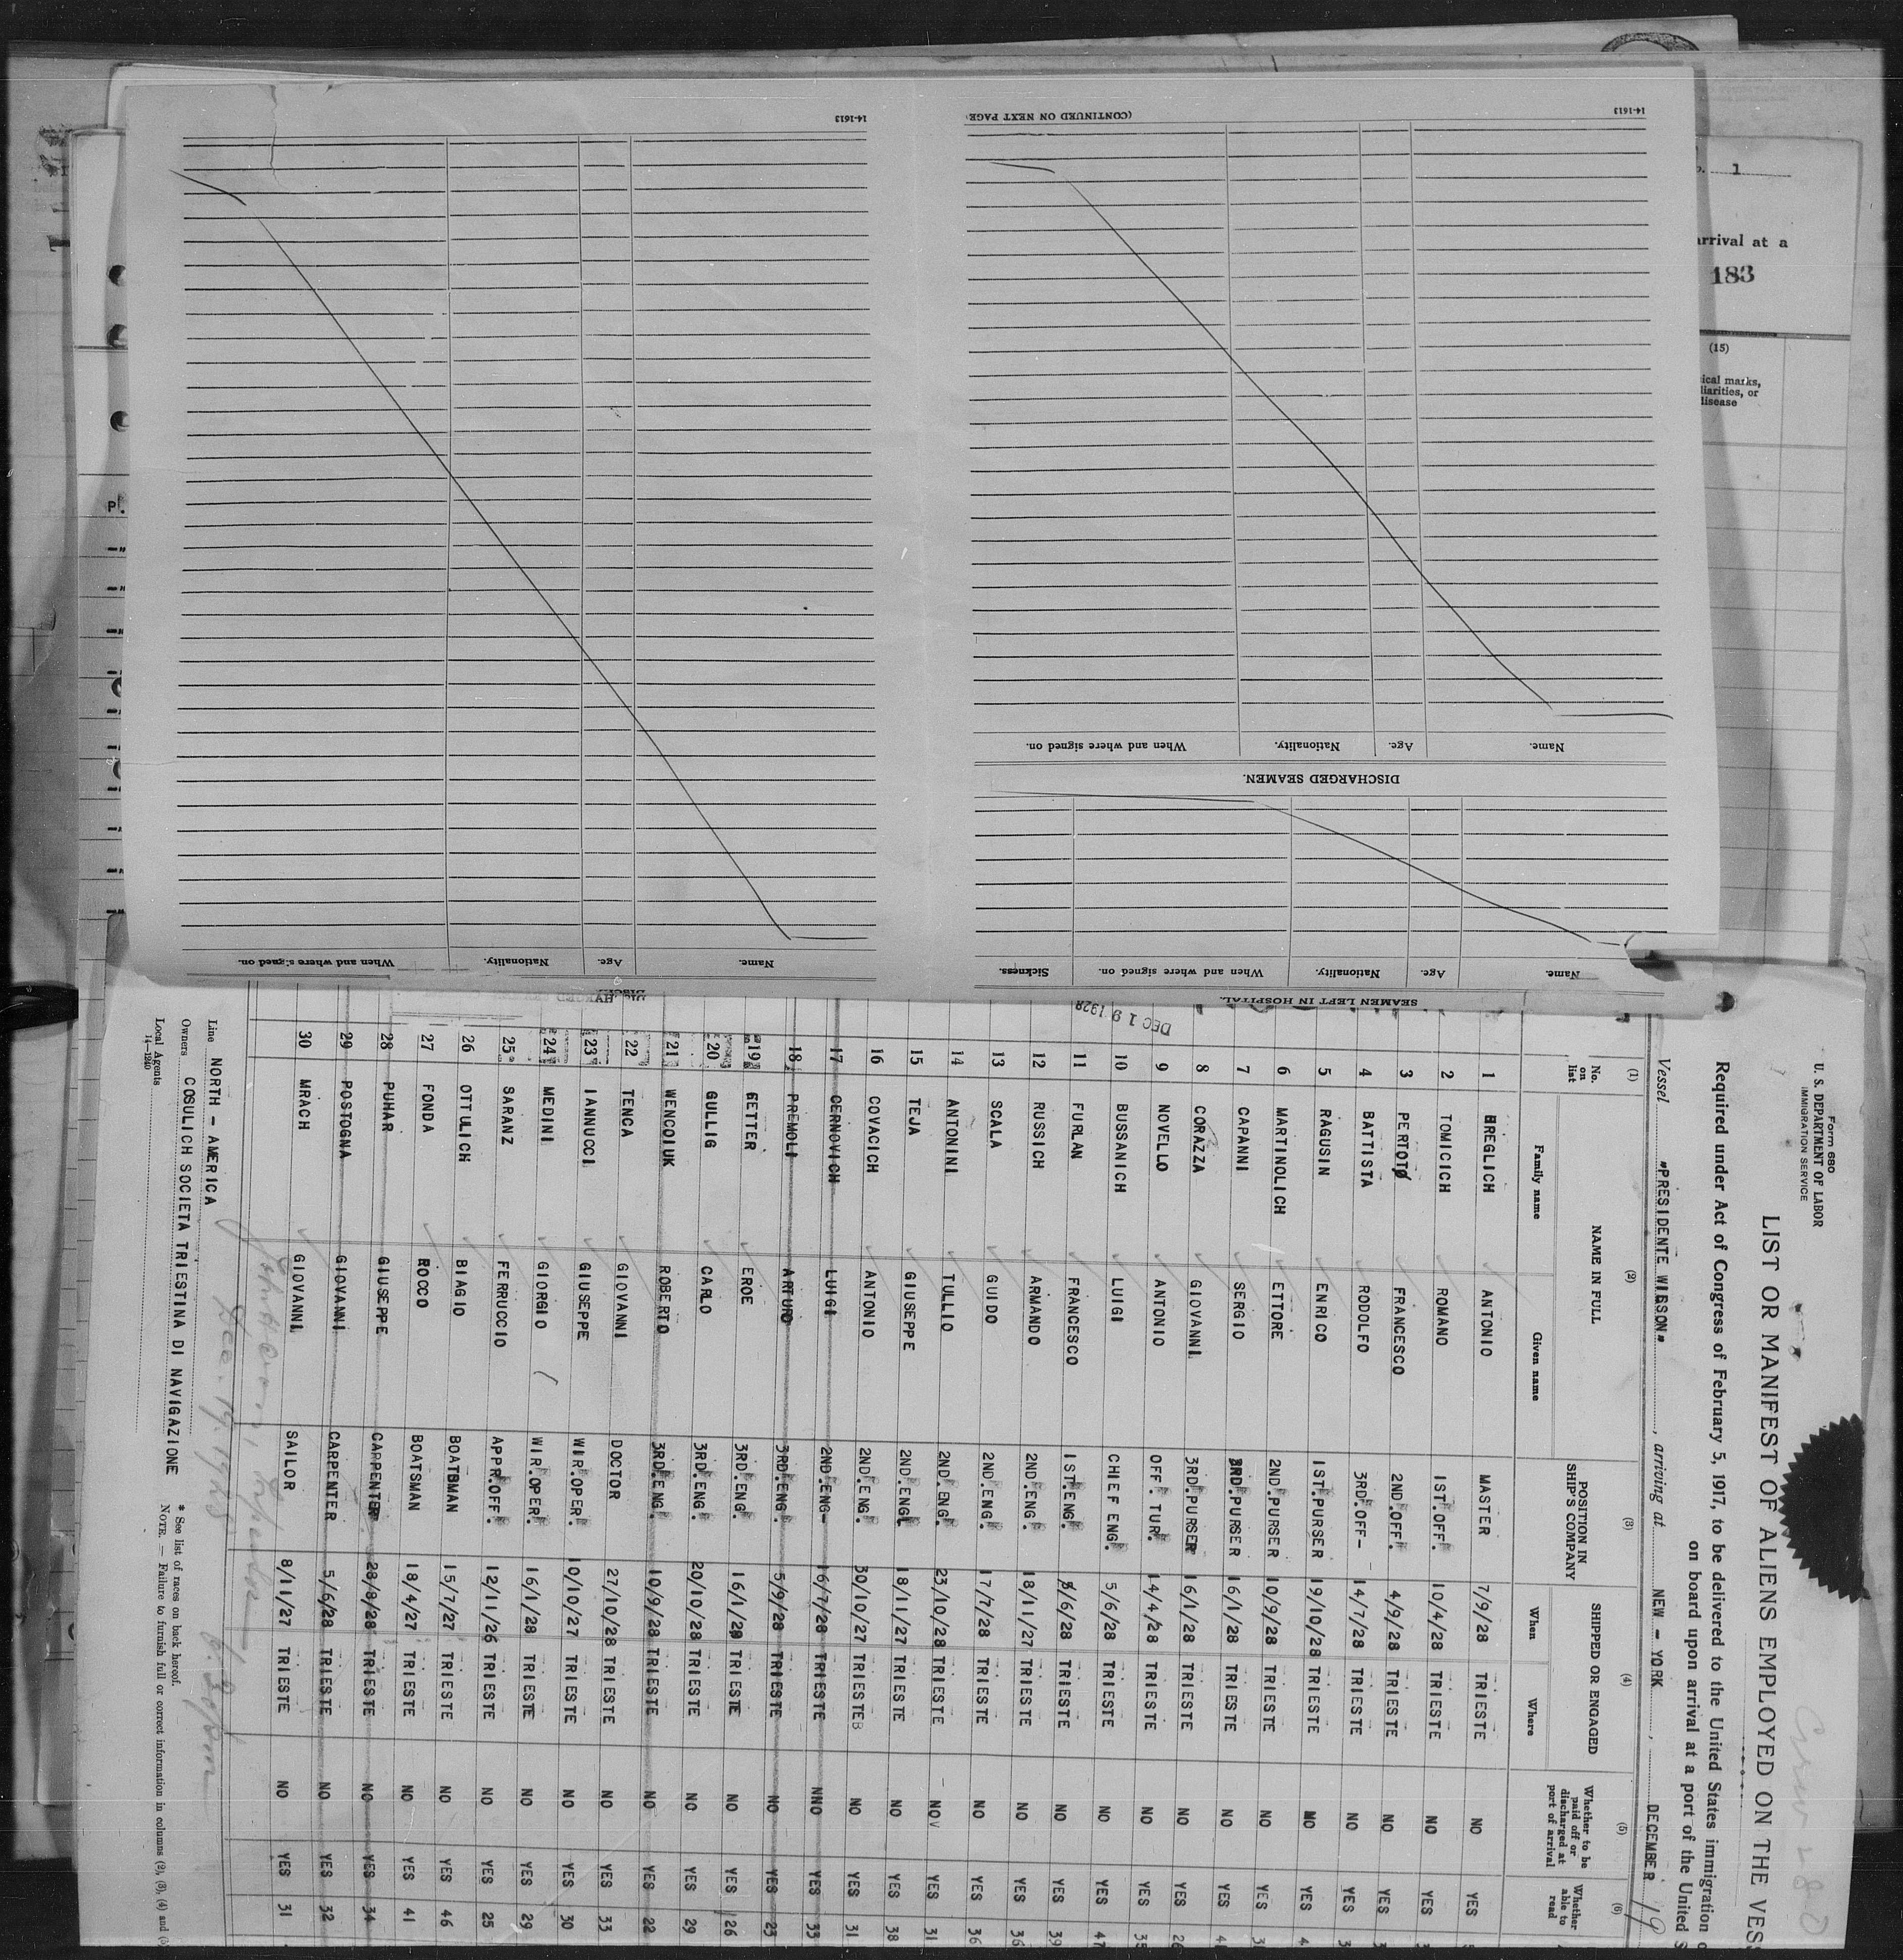 14-1613
(CONTINUED ON NEXT PAGE)
14-1613
Name.
Age.
Nationality.
When and where signed on.
DISCHARGED SEAMEN.
Name.
Age.
Nationality.
When and where signed on.
Sickness.
SEAMEN LEFT IN HOSPITAL.
Name.
Age.
Nationality.
When and where signed on.
1
arrival at a
183
(15)
ical marks,
liarities, or
disease
DEC 19 1928
Form 680
U. S. DEPARTMENT OF LABOR
IMMIGRATION SERVICE
LIST OR MANIFEST OF ALIENS EMPLOYED ON THE VES
Required under Act of Congress of February 5, 1917, to be delivered to the United States immigration
on board upon arrival at a port of the United S
Vessel "PRESIDENTE WILSON", arriving at NEW - YORK, DECEMBER 19
(1) No. on list
(2) NAME IN FULL
Family name Given name
(3) POSITION IN SHIP'S COMPANY
(4) SHIPPED OR ENGAGED
When Where
(5) Whether to be paid off or discharged at port of arrival
(6) Whether able to read
1 BREGLICH ANTONIO MASTER 7/9/28 TRIESTE NO YES
2 TOMICICH ROMANO 1ST.OFF. 10/4/28 TRIESTE NO YES
3 PERTOT FRANCESCO 2ND.OFF. 4/9/28 TRIESTE NO YES
4 BATTISTA RODOLFO 3RD.OFF- 14/7/28 TRIESTE NO YES
5 RAGUSIN ENRICO 1ST.PURSER 19/10/28 TRIESTE NO YES
6 MARTINOLICH ETTORE 2ND.PURSER 10/9/28 TRIESTE NO YES
7 CAPANNI SERGIO 3RD.PURSER 16/1/28 TRIESTE NO YES
8 CORAZZA GIOVANNI 3RD.PURSER 16/1/28 TRIESTE NO YES 26
9 NOVELLO ANTONIO OFF. TUR. 14/4/28 TRIESTE NO YES
10 BUSSANICH LUIGI CHIEF ENG. 5/6/28 TRIESTE NO YES 47
11 FURLAN FRANCESCO 1ST.ENG. 5/6/28 TRIESTE NO YES 39
12 RUSSICH ARMANDO 2ND.ENG. 18/11/27 TRIESTE NO YES 36
13 SCALA GUIDO 2ND.ENG. 17/7/28 TRIESTE NO YES 36
14 ANTONINI TULLIO 2ND.ENG. 23/10/28 TRIESTE NO YES 31
15 TEJA GIUSEPPE 2ND.ENG. 18/11/27 TRIESTE NO YES 38
16 COVACICH ANTONIO 2ND.ENG. 30/10/27 TRIESTE NO YES 31
17 CERNOVICH LUIGI 2ND.ENG- 16/7/28 TRIESTE NNO YES 33
18 PREMOLI ARTURO 3RD.ENG. 5/9/28 TRIESTE NO YES 23
19 GETTER EROE 3RD.ENG. 16/1/28 TRIESTE NO YES 26
20 GULLIG CARLO 3RD.ENG. 20/10/28 TRIESTE NO YES 29
21 WENCOIUK ROBERTO 3RD.ENG. 10/9/28 TRIESTE NO YES 22
22 TENCA GIOVANNI DOCTOR 27/10/28 TRIESTE NO YES 33
23 IANNUCCI GIUSEPPE WIR.OPER. 10/10/27 TRIESTE NO YES 30
24 MEDINI GIORGIO WIR.OPER. 16/1/28 TRIESTE NO YES 29
25 SARANZ FERRUCCIO APPR.OFF. 12/11/26 TRIESTE NO YES 25
26 OTTULICH BIAGIO BOATSMAN 15/7/27 TRIESTE NO YES 46
27 FONDA ROCCO BOATSMAN 18/4/27 TRIESTE NO YES 41
28 PUHAR GIUSEPPE CARPENTER 28/8/28 TRIESTE NO YES 34
29 POSTOGNA GIOVANNI CARPENTER 5/6/28 TRIESTE NO YES 32
30 MRACH GIOVANNI SAILOR 8/11/27 TRIESTE NO YES 31
Dec. 19. 1928
Line NORTH - AMERICA
Owners COSULICH SOCIETA TRIESTINA DI NAVIGAZIONE
Local Agents
14-1240
* See list of races on back hereof.
NOTE. — Failure to furnish full or correct information in columns (2), (3), (4) and (5)